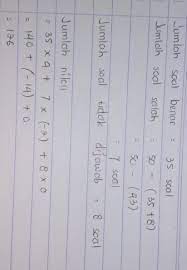 Jumlah soal benar = 35 soal
Jumlah soal salah = 50 - (35+8)
= 50 - (43)
= 7 soal
Jumlah soal tidak dijawab = 8 soal
Jumlah nilai
= 35 x 4 + 7 x (-2) + 8 x 0
= 140 + (-14) + 0
= 126